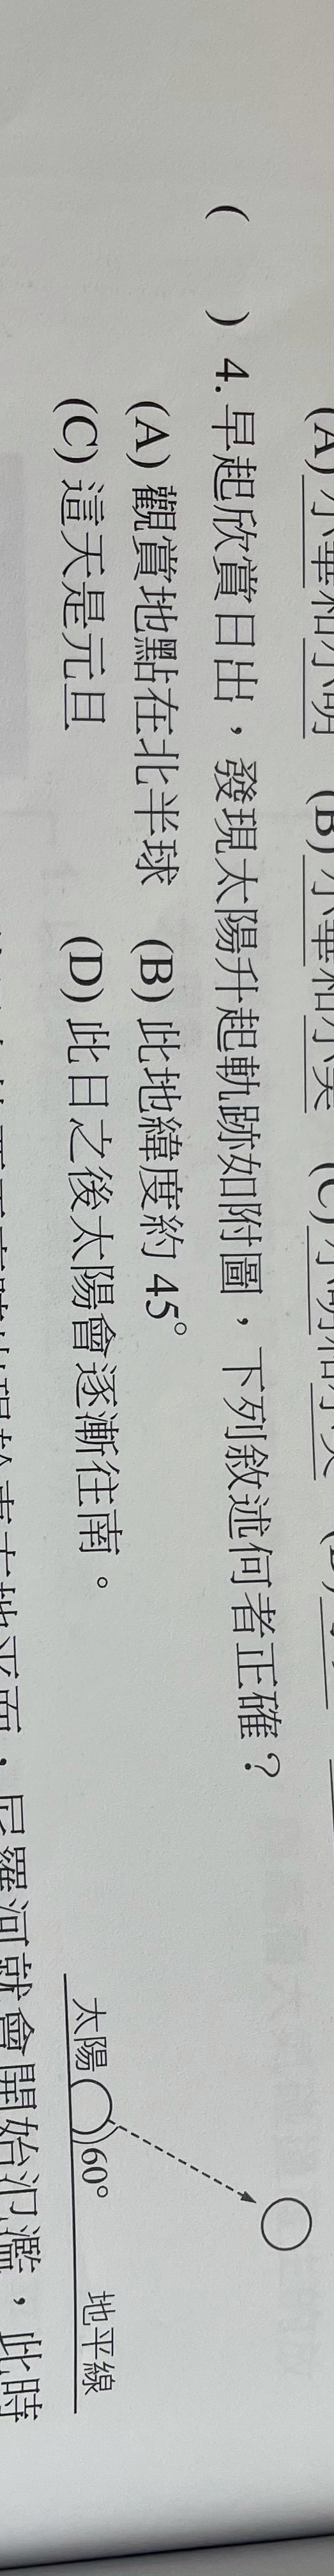 (A)小華和小明 (B)小華和小美 (C)小明和小美
( ) 4. 早起欣賞日出，發現太陽升起軌跡如附圖，下列敘述何者正確？
(A) 觀賞地點在北半球 (B) 此地緯度約 45°
(C) 這天是元旦 (D) 此日之後太陽會逐漸往南。
太陽 60° 地平線
地平面，尼羅河就會開始氾濫，此時